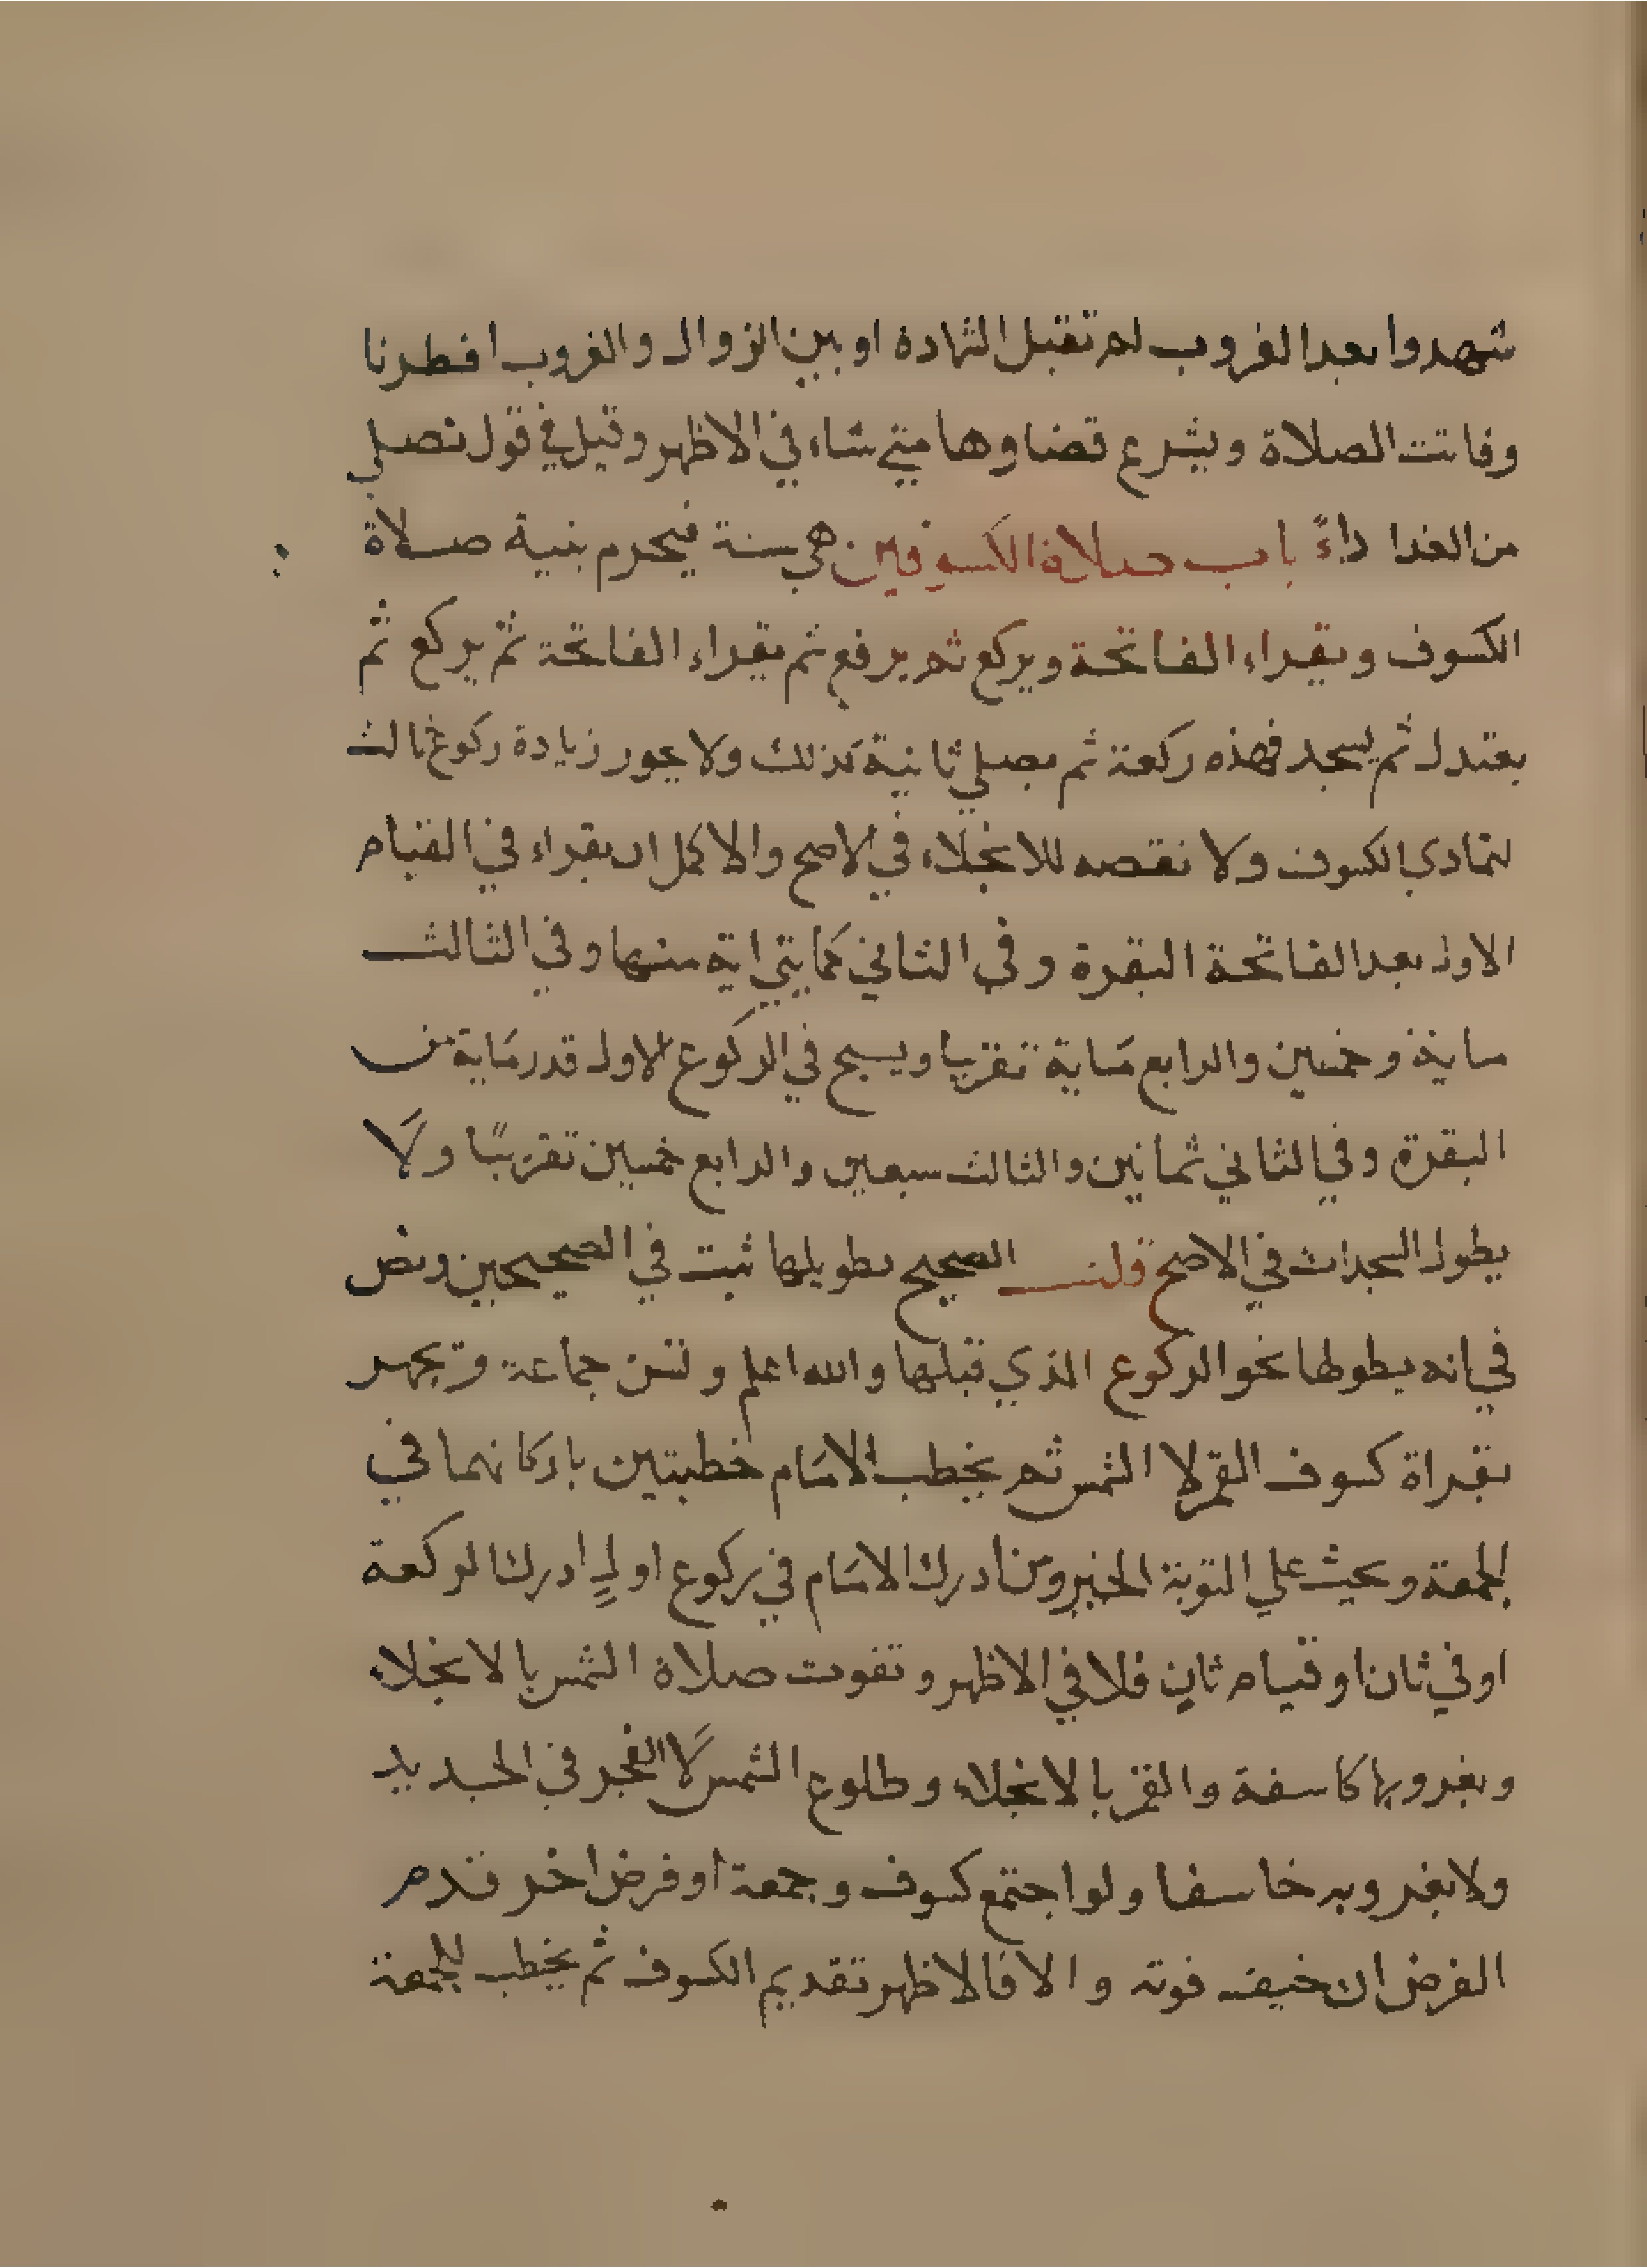 شهدوا بعد الغروب لم تقبل الشهادة او بين الزوال والغروب افطرنا
وفاتت الصلاة ويشرع قضاوها متي شاء في الاظهر وقيل في قول تصلي
من الغدا داءً باب صلاة الكسوفين هي سنة فيحرم بنية صلاة
الكسوف ويقراء الفاتحة ويركع ثم يرفع ثم يقراء الفاتحة ثم يركع ثم
يعتدل ثم يسجد فهذه ركعة ثم يصلي ثانية كذلك ولا يجوز زيادة ركوع ثالث
لتمادي الكسوف ولا نقصه للانجلاء في الاصح والاكمل ان يقراء في القيام
الاول بعد الفاتحة البقرة وفي الثاني كمايتي اية منها وفي الثالث
ماية وخمسين والرابع ماية تقريبا ويسبح في الركوع الاول قدر ماية من
البقرة وفي الثاني ثمانين والثالث سبعين والرابع خمسين تقريبًا ولا
يطول السجدات في الاصح قلت الصحيح تطويلها ثبت في الصحيحين ونص
في انه يطولها نحو الركوع الذي قبلها والله اعلم وتسن جماعة ويجهر
بقراة كسوف القمر لا الشمس ثم يخطب الامام خطبتين باركانهما في
الجمعة ويحث علي التوبة الخير ومن ادرك الامام في ركوع اولٍ ادرك الركعة
او في ثان او قيام ثان فلا في الاظهر وتفوت صلاة الشمس بالانجلاء
وبغروبها كاسفة والقمر بالانجلاء وطلوع الشمس لا الفجر في الجديد
ولا بغروبه خاسفا ولو اجتمع كسوف وجمعة او فرض اخر قدم
الفرض ان خيف فوته والا فالاظهر تقديم الكسوف ثم يخطب للجمعة